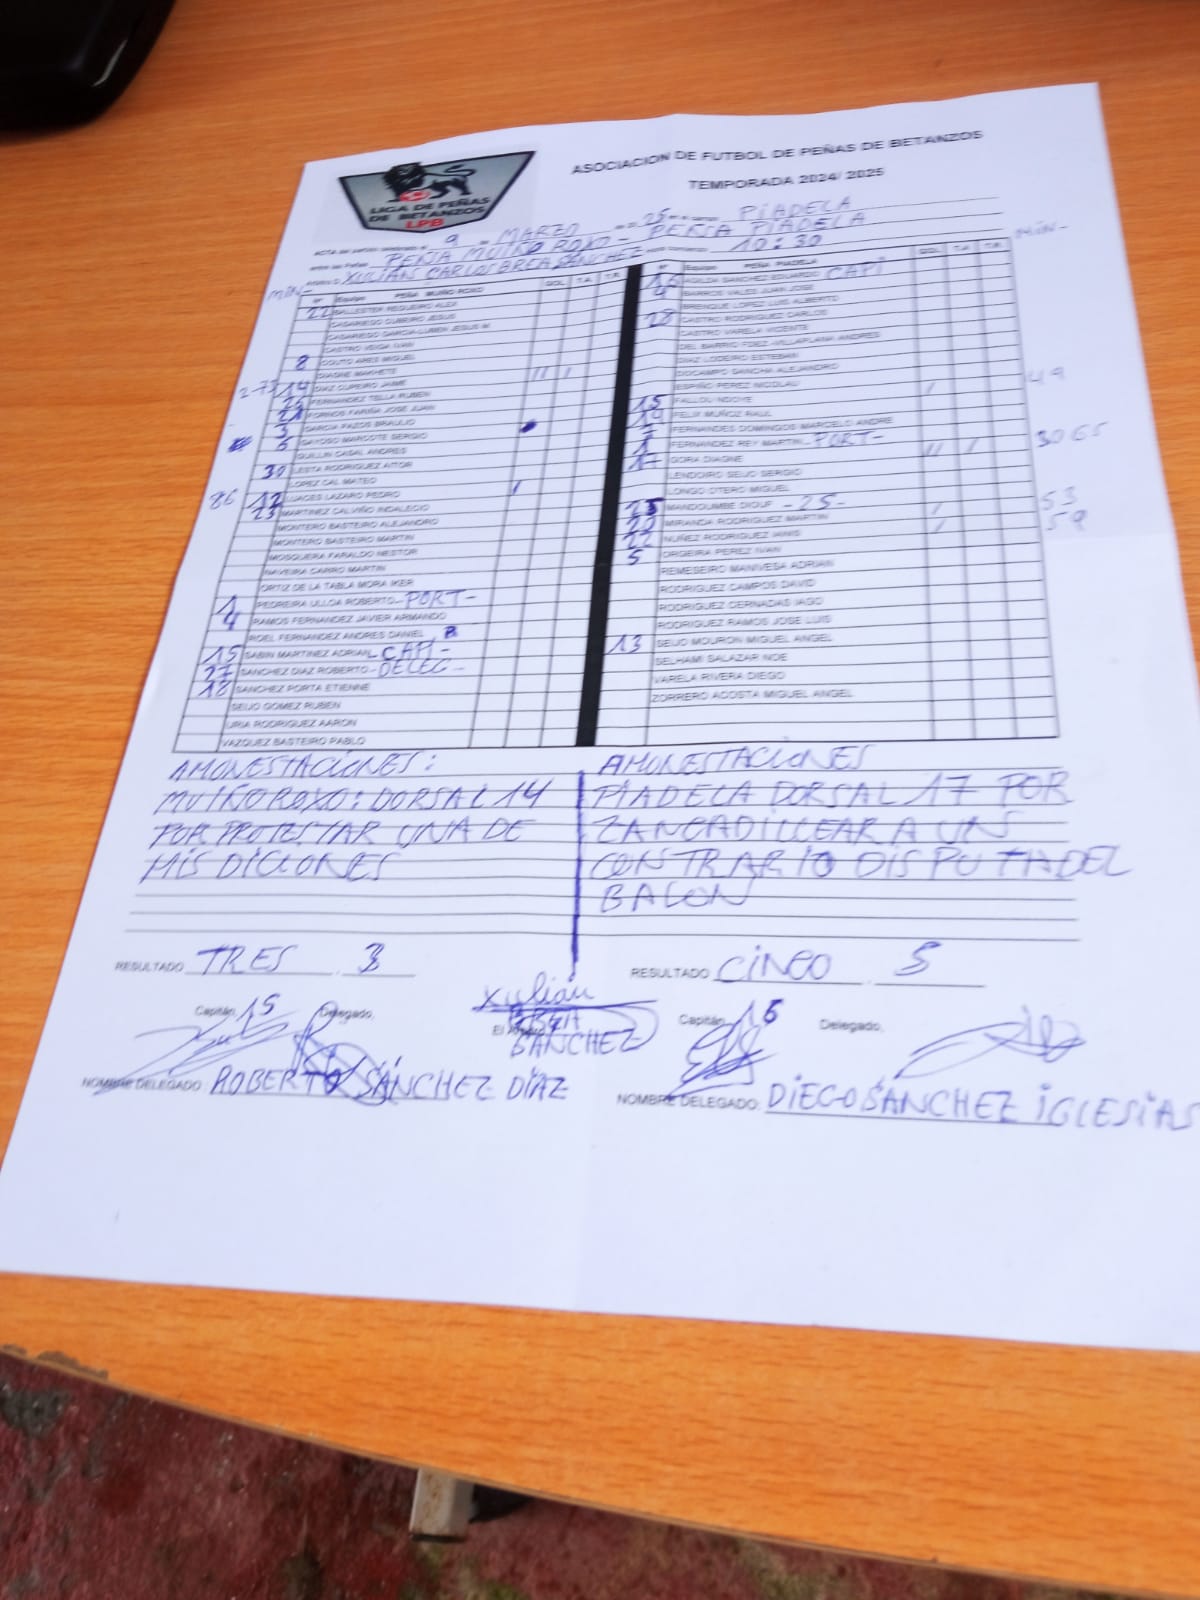 ASOCIACION DE FUTBOL DE PEÑAS DE BETANZOS
TEMPORADA 2024/ 2025
LIGA DE PEÑAS
DE BETANZOS
LPB
9 de MARZO de 25 PIADELA
PEÑA MUIÑO ROXO - PEÑA PIADELA
XULIÁN CARLOS BREA SÁNCHEZ 10:30
MIN-
Nº Equipo PEÑA MUIÑO ROXO GOL T.A. T.R.
22 BALLESTER REGUEIRO ALEX
CASARIEGO CUBEIRO JESUS
CASARIEGO GARCIA-LUBEN JESUS M
CASTRO VEIGA IVAN
8 COUTO ARES MIGUEL
DIAGNE MAKHETE
2-73 14 DIAZ CUPEIRO JAIME II I
FERNANDEZ TELLA RUBEN
21 FORNOS FARIÑA JOSE JUAN
3 GARCIA PAZOS BRAULIO
5 GAYOSO MARCOTE SERGIO
GUILLIN CASAL ANDRES
30 LESTA RODRIGUEZ AITOR
LOPEZ CAL MATEO
86 12 LUACES LAZARO PEDRO I
23 MARTINEZ CALVIÑO INDALECIO
MONTERO BASTEIRO ALEJANDRO
MONTERO BASTEIRO MARTIN
MOSQUERA FARALDO NESTOR
NAVEIRA CARRO MARTIN
ORTIZ DE LA TABLA MORA IKER
1 PEDREIRA ULLOA ROBERTO - PORT-
4 RAMOS FERNANDEZ JAVIER ARMANDO
ROEL FERNANDEZ ANDRES DANIEL
15 SABIN MARTINEZ ADRIAN - CAPI-
27 SANCHEZ DIAZ ROBERTO - DELEG-
18 SANCHEZ PORTA ETIENNE
SEIJO GOMEZ RUBEN
URIA RODRIGUEZ AARON
VAZQUEZ BASTEIRO PABLO
MIN-
Nº Equipo PEÑA PIADELA GOL T.A. T.R.
16 SANCHEZ EDUARDO CAPI
4 BARROS VALES JUAN JOSE
BRENQUE LOPEZ LUIS ALBERTO
28 CASTRO RODRIGUEZ CARLOS
CASTRO VARELA VICENTE
DEL BARRIO FDEZ -VILLAPLANA ANDRES
DIAZ LODEIRO ESTEBAN
DOCAMPO SANCHA ALEJANDRO
ESPIÑO PEREZ NICOLAU
15 FALLOU NDOYE I 49
19 FELIX MUÑOZ RAUL
FERNANDES DOMINGOS MARCELO ANDRE
1 FERNANDEZ REY MARTIN - PORT-
17 GORA DIAGNE II I 30 65
LENDOIRO SEIJO SERGIO
LONGO OTERO MIGUEL
MANDOUMBE DIOUF - 25 - I 53
20 MIRANDA RODRIGUEZ MARTIN I 59
22 NUÑEZ RODRIGUEZ IANIS
5 ORGEIRA PEREZ IVAN
REMESEIRO MANIVESA ADRIAN
RODRIGUEZ CAMPOS DAVID
RODRIGUEZ CERNADAS IAGO
RODRIGUEZ RAMOS JOSE LUIS
13 SEIJO MOURON MIGUEL ANGEL
SELHAMI SALAZAR NOE
VARELA RIVERA DIEGO
ZORRERO ACOSTA MIGUEL ANGEL
AMONESTACIONES:
MUIÑO ROXO: DORSAL 14
POR PROTESTAR UNA DE
MIS DICIONES
AMONESTACIONES
PIADELA DORSAL 17 POR
ZANCADILLEAR A UN
CONTRARIO DISPUTA DEL
BALON
RESULTADO TRES 3
RESULTADO CINCO 5
Capitán, 15 Delegado,
Xulián
El Arbitro
BREA
SÁNCHEZ
Capitán, 16 Delegado,
NOMBRE DELEGADO: ROBERTO SÁNCHEZ DÍAZ
NOMBRE DELEGADO: DIEGO SÁNCHEZ IGLESIAS